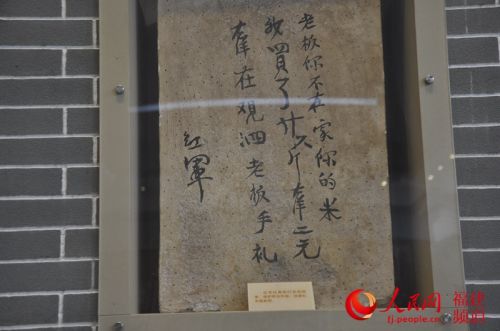 老板你不在家你的米
我買了廿六斤大洋二元
大洋在观泗老板手礼
红軍
人民网 福建
频道
fj.people.cn